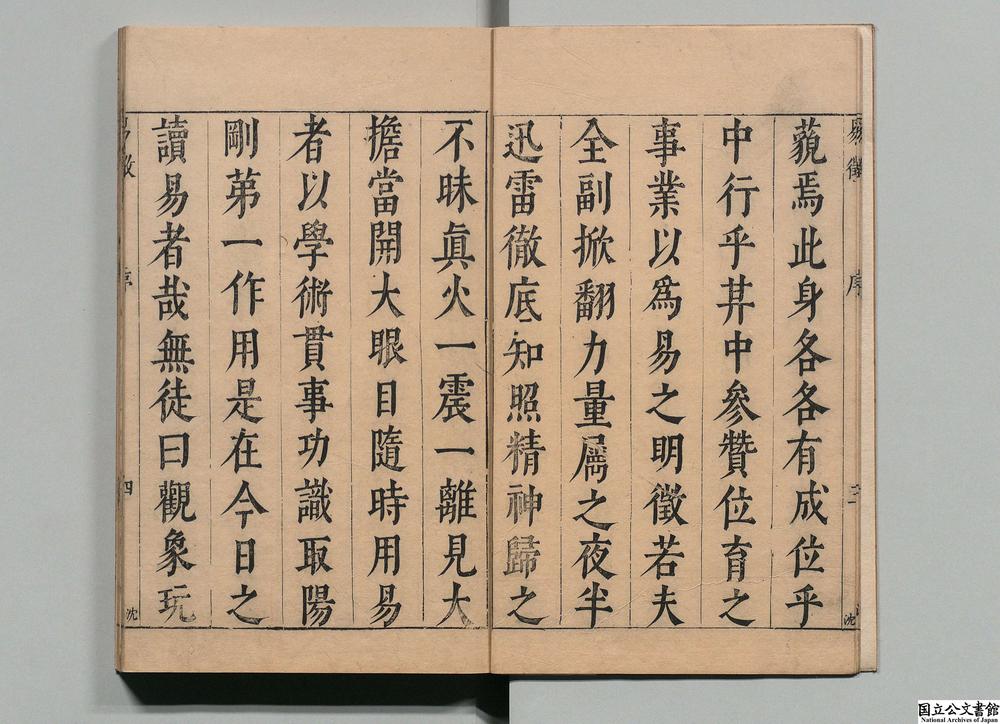 藐焉此身各各有成位乎
中行乎其中參贊位育之
事業以爲易之明徵若夫
全副掀翻力量屬之夜半
迅雷徹底知照精神歸之
不昧眞火一震一離見大
擔當開大眼目隨時用易
者以學術貫事功識取陽
剛第一作用是在今日之
讀易者哉無徒曰觀象玩
易徵
序
沈
序
四
沈
国立公文書館
National Archives of Japan